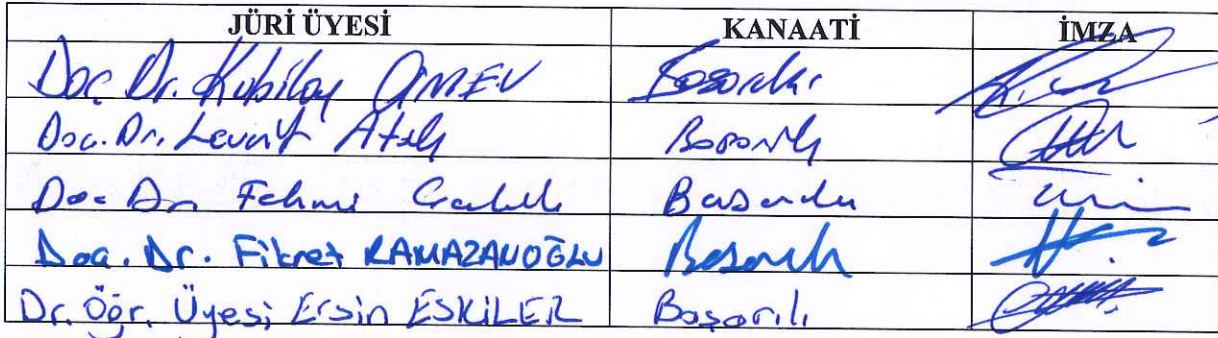 JÜRİ ÜYESİ KANAATİ İMZA
Doc. Dr. Kubilay Başarılı
Doc. Dr. Levent Atalı Başarılı
Doc. Dr. Fehmi Başarılı
Doç. Dr. Fikret RAMAZANOĞLU Başarılı
Dr. Öğr. Üyesi Ersin ESKİLER Başarılı